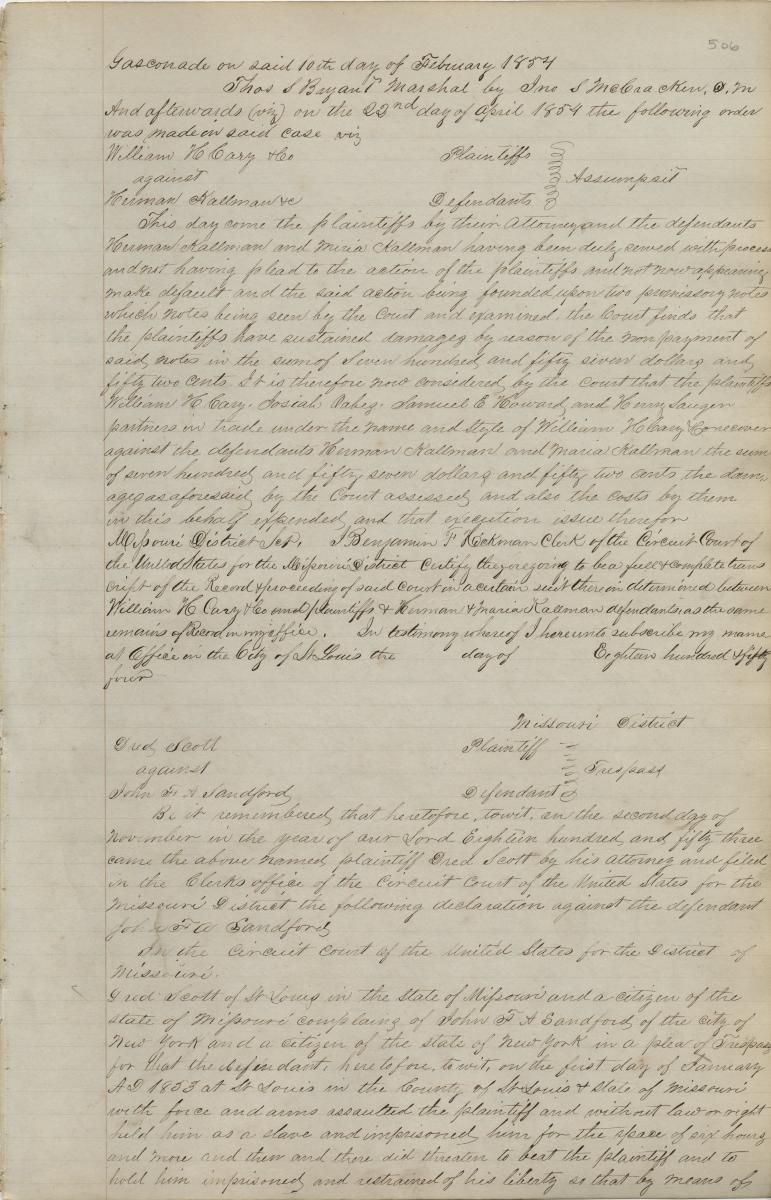 506
Gasconade on said 10th day of February 1854
Thos S Bryant Marshal by Jno S McCracken, D, M
And afterwards (viz) on the 22nd day of April 1854 the following order
was made in said case viz
William H Cary & Co Plaintiffs
against Assumpsit
Herman Kallman &c Defendants
This day come the plaintiffs by their Attorney and the defendants
Herman Kallman and Miria Kallman having been duly served with process
and not having plead to the action of the plaintiffs and not now appearing
make default and the said action being founded upon two promissory notes
which notes being seen by the Court and examined, the Court finds that
the plaintiffs have sustained damages by reason of the nonpayment of
said notes in the sum of Seven hundred and fifty seven dollars and
fifty two cents It is therefore now considered by the court that the plaintiffs
William H Cary. Josiah Samuel E Howard and Henry Sanger
partners in trade under the name and Style of William H Cary & Co recover
against the defendants Herman Kallman and Maria Kallman the sum
of seven hundred and fifty seven dollars and fifty two cents the dam
ages as aforesaid by the Court assessed and also the costs by them
in this behalf expended and that execution issue therefor
Missouri District Sct. I Benjamin F Hickman Clerk of the Circuit Court of
the United States for the Missouri District certify the foregoing to be a full & complete trans
cript of the Record & proceeding of said court in a certain suit therein determined between
William H Cary & Co and plaintiffs & Herman & Maria Kallman defendants as the same
remains of Record in my office. In testimony whereof I hereunto subscribe my name
at Office in the City of St Louis the day of Eighteen hundred & fifty
four
Missouri District
Dred Scott Plaintiff
against Trespass
John F A Sandford Defendant
Be it remembered that heretofore, towit, on the second day of
November in the year of our Lord Eighteen hundred and fifty three
came the above named plaintiff Dred Scott by his attorney and filed
in the Clerks office of the Circuit Court of the United States for the
Missouri District the following declaration against the defendant
John F A Sandford
In the Circuit Court of the United States for the District of
Missouri.
Dred Scott of St Louis in the State of Missouri and a citizen of the
state of Missouri complains of John F A Sandford of the city of
New York and a citizen of the state of New York in a plea of Trespass
for that the defendant, heretofore, to wit, on the first day of January
AD 1853 at St Louis in the County of St Louis & State of Missouri
with force and arms assaulted the plaintiff and without law or right
held him as a slave and imprisoned him for the space of six hours
and more and then and there did threaten to beat the plaintiff and to
hold him imprisoned and restrained of his liberty so that by means of